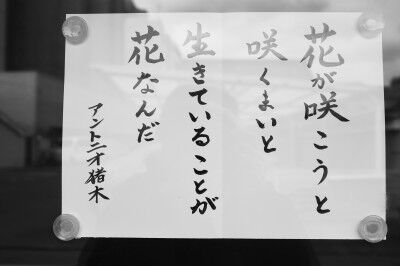 花が咲こうと
咲くまいと
生きていることが
花なんだ
アントニオ猪木